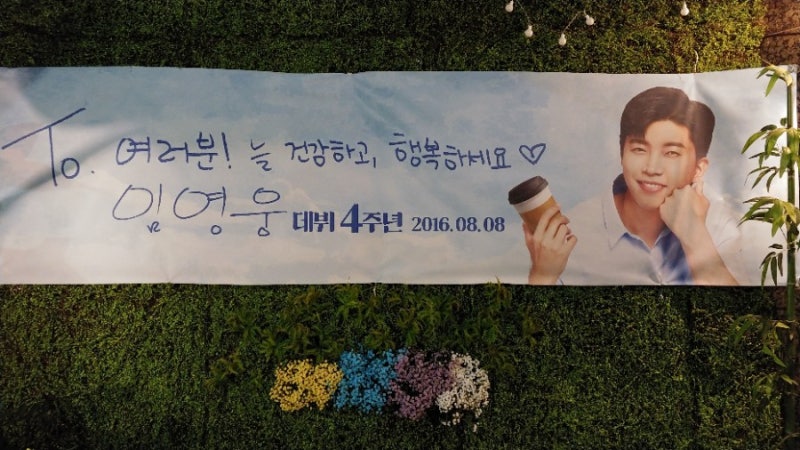 To. 여러분! 늘 건강하고, 행복하세요♡
임영웅 데뷔 4주년 2016.08.08